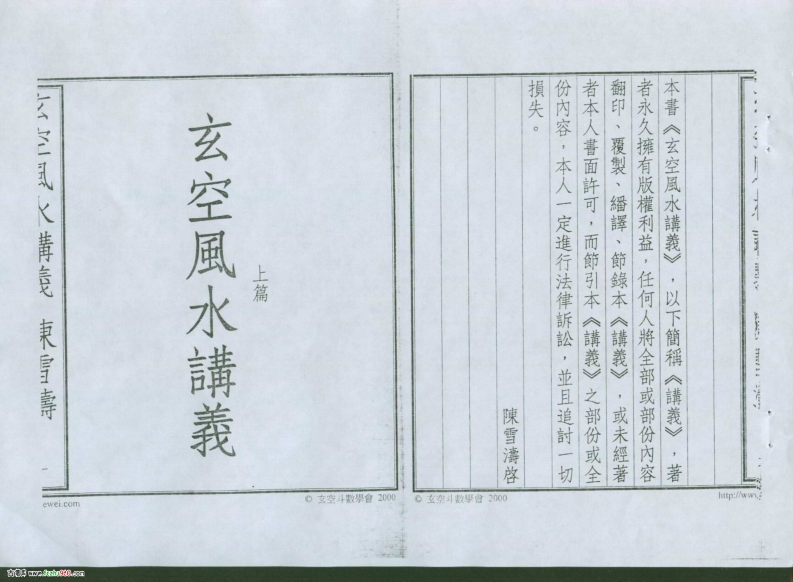 本書《玄空風水講義》，以下簡稱《講義》，著
者永久擁有版權利益，任何人將全部或部份內容
翻印、覆製、繙譯、節錄本《講義》，或未經著
者本人書面許可，而節引本《講義》之部份或全
份內容，本人一定進行法律訴訟，並且追討一切
損失。
陳雪濤啓
© 玄空斗數學會 2000
http://www
上篇
玄空風水講義
玄空風水講義 陳雪濤
一
© 玄空斗數學會 2000
ewei.com